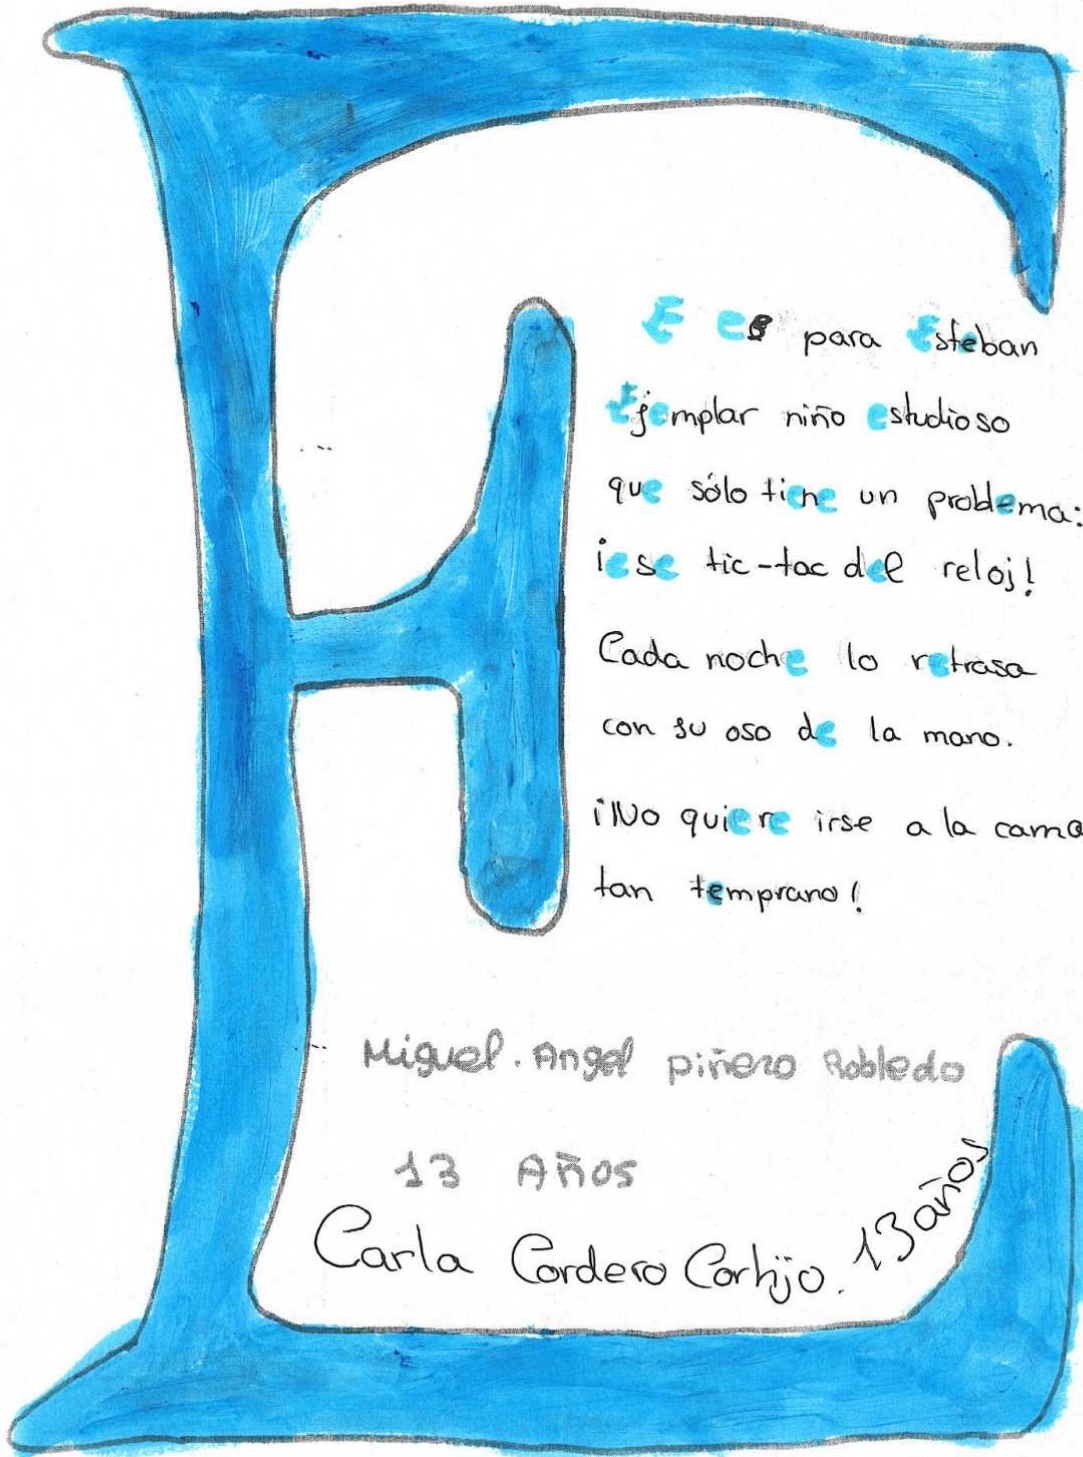 E es para Esteban
Ejemplar niño estudioso
que sólo tiene un problema:
¡ese tic-tac del reloj!
Cada noche lo retrasa
con su oso de la mano.
¡No quiere irse a la cama
tan temprano!
Miguel. Angel piñero Robledo
13 Años
Carla Cordero Cortijo. 13 años